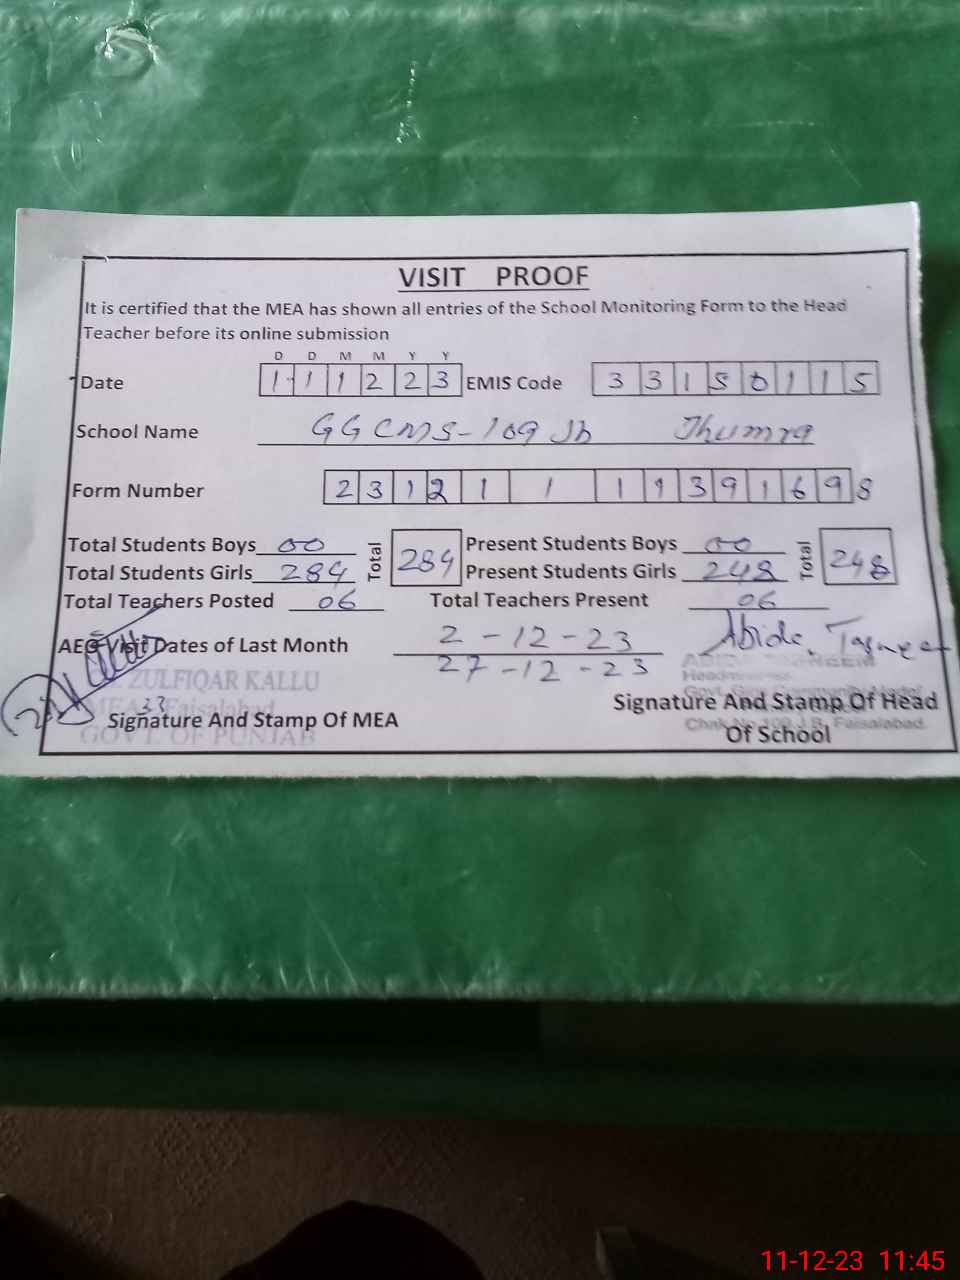 VISIT PROOF
It is certified that the MEA has shown all entries of the School Monitoring Form to the Head
Teacher before its online submission
D D M M Y Y
Date 1 1 1 2 2 3 EMIS Code 3 3 1 5 0 1 1 5
School Name GGCMS-109 Jb Jhumra
Form Number 2 3 1 2 1 1 1 1 3 9 1 6 9 8
Total Students Boys 00 Total 284 Present Students Boys 00 Total 248
Total Students Girls 284 Present Students Girls 248
Total Teachers Posted 06 Total Teachers Present 06
AEO Visit Dates of Last Month 2-12-23
27-12-23
Abida Tasneem
ZULFIQAR KALLU
MEA 33 Faisalabad
GOVT. OF PUNJAB
Signature And Stamp Of MEA
Signature And Stamp Of Head
Of School
Chak No 109 J.B. Faisalabad
11-12-23 11:45